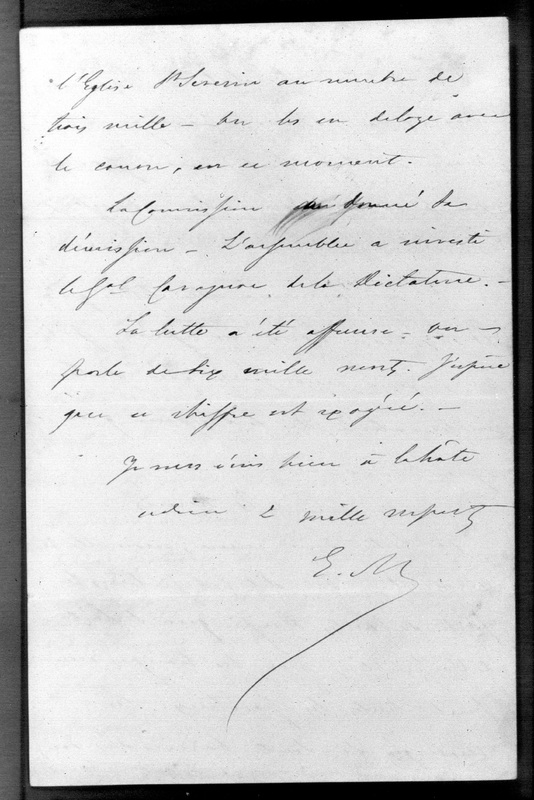 l'Eglise St Severin au nombre de
trois mille – on les en deloge avec
le canon, en ce moment.
La Commission a donné sa
démission – L'assemblée a investi
le Gal Cavaignac de la Dictature. –
La lutte a été affreuse – on –
parle de dix mille morts. J'espère
que ce chiffre est exagéré. –
Je vous écris bien à la hâte
adieu & mille respects
E. M.